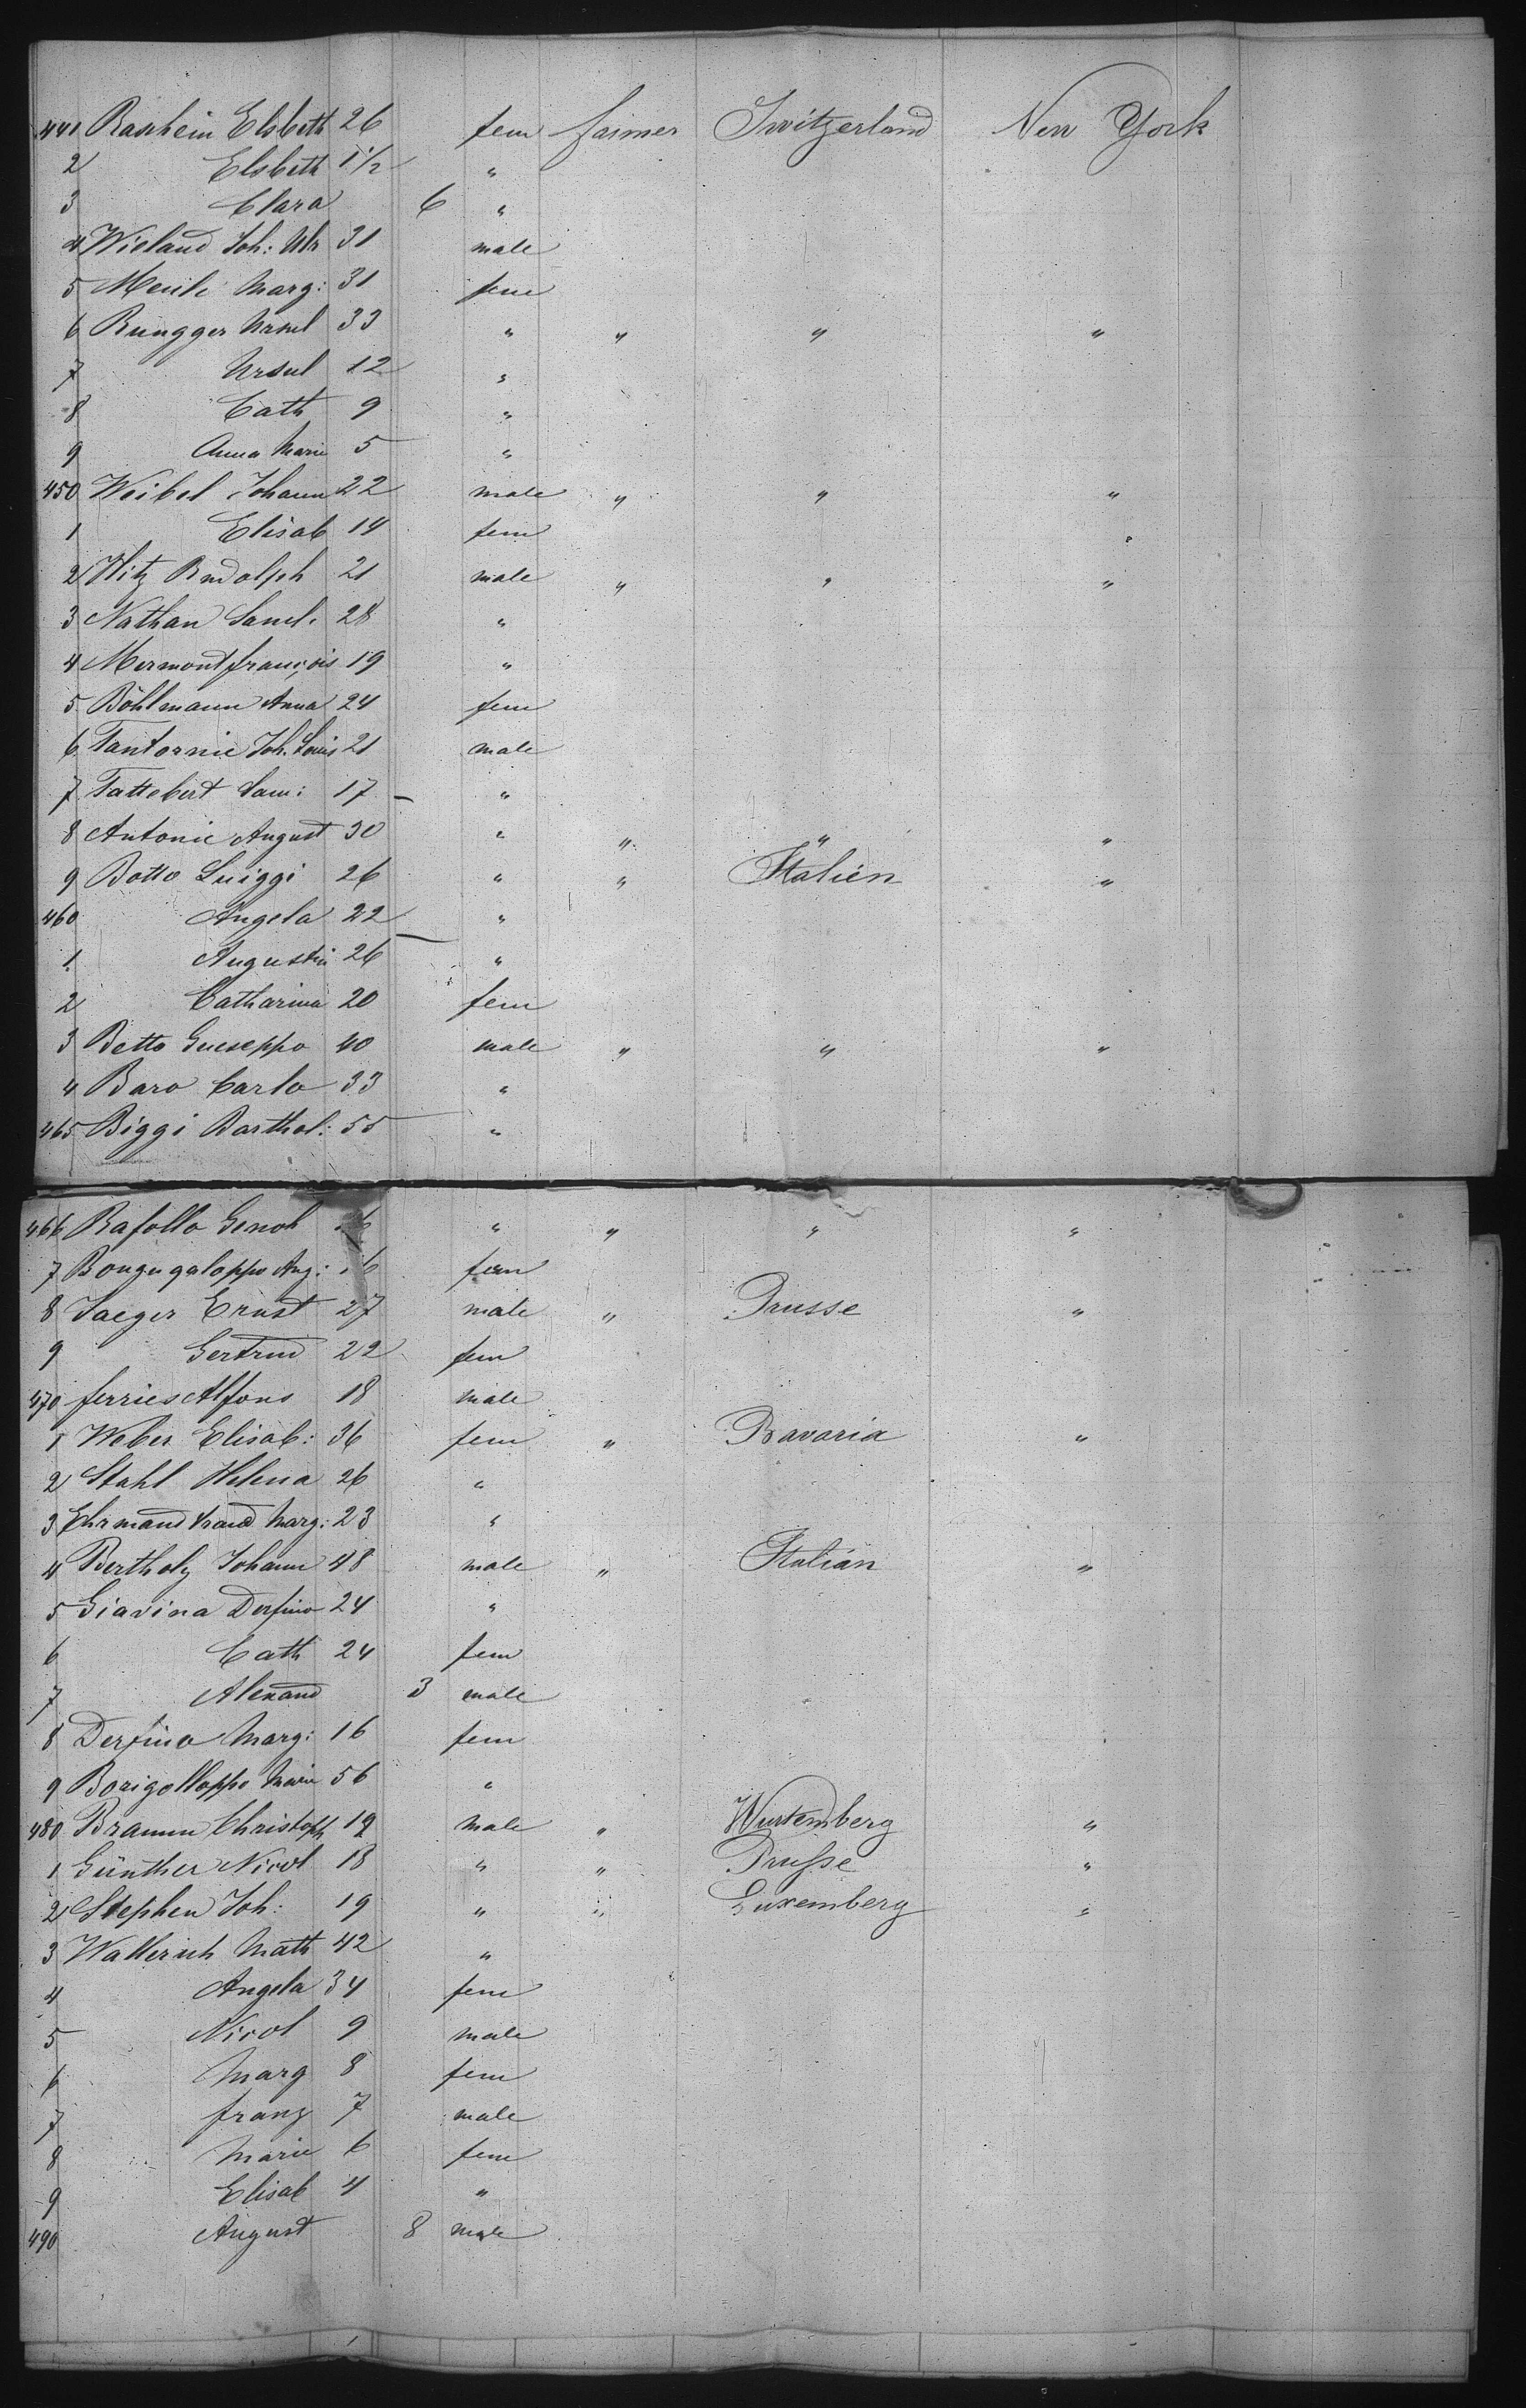 441 Raschein Elsbeth 26 fem farmer Switzerland New York
2 Elsbeth 1 1/2 "
3 Clara 6 "
4 Wieland Joh: Ulr 31 male
5 Meuli Marg: 31 fem
6 Rungger Ursul 33 " " " "
7 Ursul 12 "
8 Cath 9 "
9 Anna Marie 5 "
450 Weibel Johann 22 male " " "
1 Elisab 14 fem "
2 Hitz Rudolph 21 male " " "
3 Nathan Saml. 28 "
4 Mermont françois 19 "
5 Böhlmann Anna 24 fem
6 Tantornie Joh. Louis 21 male
7 Tattebert Sam: 17 "
8 Antonie August 30 " " " "
9 Botto Luiggi 26 " " Italien "
460 Angela 22 "
1 Augustin 26 "
2 Catharina 20 fem
3 Betto Gueseppo 40 male " " "
4 Baro Carlo 33 "
465 Biggi Barthol: 55 "
466 Rafollo Genoh " " " "
7 Bougugaloppo Ang: fem
8 Jaeger Ernst 27 male " Prusse "
9 Gertrud 22 fem
470 ferries Alfons 18 male
1 Weber Elisab: 36 fem " Bavaria "
2 Stahl Helena 26 "
3 Ehrmanntraud Marg: 23 "
4 Bertholy Johann 48 male " Italian "
5 Giavina Derfino 24 "
6 Cath 24 fem
7 Alexand 3 male
8 Derfino Marg: 16 fem
9 Borigolloppo Marie 56 "
480 Braunn Christoph 19 male " Wurtemberg "
1 Günther Nicol 18 " " Prusse "
2 Stephen Joh: 19 " " Luxemberg "
3 Wallerich Math 42 "
4 Angela 34 fem
5 Nicol 9 male
6 Marg 8 fem
7 franz 7 male
8 Marie 6 fem
9 Elisab 4 "
490 August 8 male